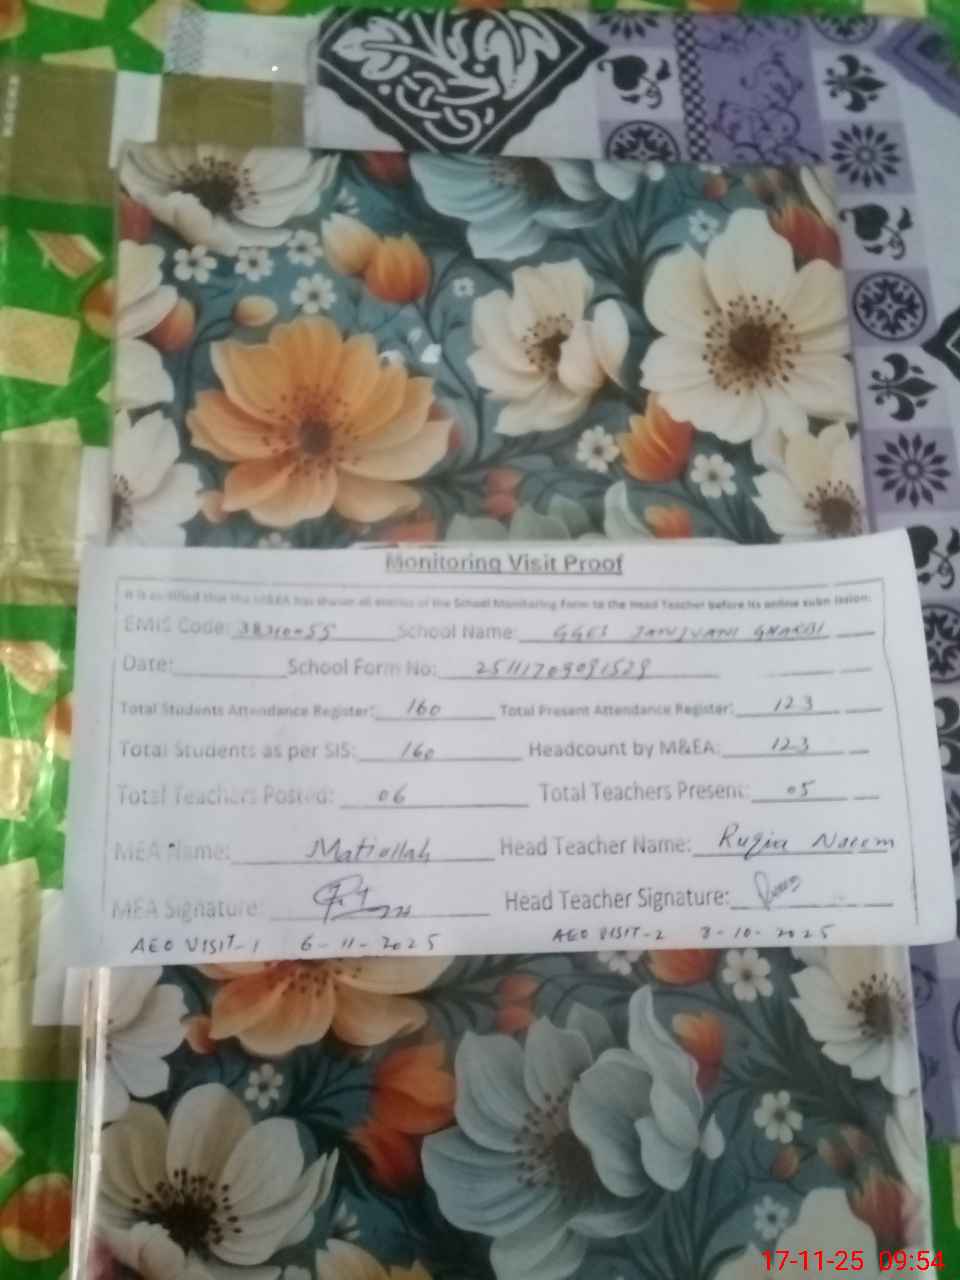 Monitoring Visit Proof
It is certified that the M&EA has shown all entries of the School Monitoring Form to the Head Teacher before its online submission:
EMIS Code: 38310055 School Name: GGES JANJUANI GHARBI
Date: School Form No: 25111709091529
Total Students Attendance Register: 160 Total Present Attendance Register: 123
Total Students as per SIS: 160 Headcount by M&EA: 123
Total Teachers Posted: 06 Total Teachers Present: 05
MEA Name: Matiullah Head Teacher Name: Ruqia Naeem
MEA Signature: Head Teacher Signature:
AEO VISIT-1 6-11-2025 AEO VISIT-2 -10-2025
17-11-25 09:54